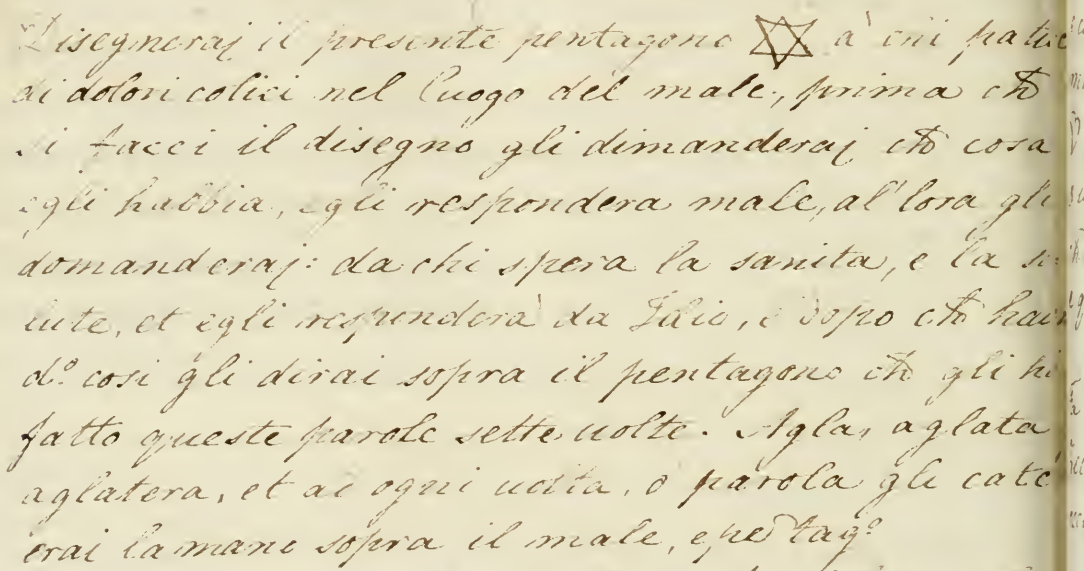 Disegneraj il presente pentagono ✡ à chi patisc
di dolori colici nel luogo del male, prima ch̃
si facci il disegno gli dimanderaj ch̃ cosa
egli habbia, egli respondera male, al'lora gli
domanderaj: da chi spera la sanita, e la sa:
lute, et egli responderà da Idio, e dopo ch̃ hai
d.º cosi gli dirai sopra il pentagono ch̃ gli hi
fatto queste parole sette uolte. Agla, aglata
aglatera, et ad ogni uolta, o parola gli
erai la mane sopra il male, e